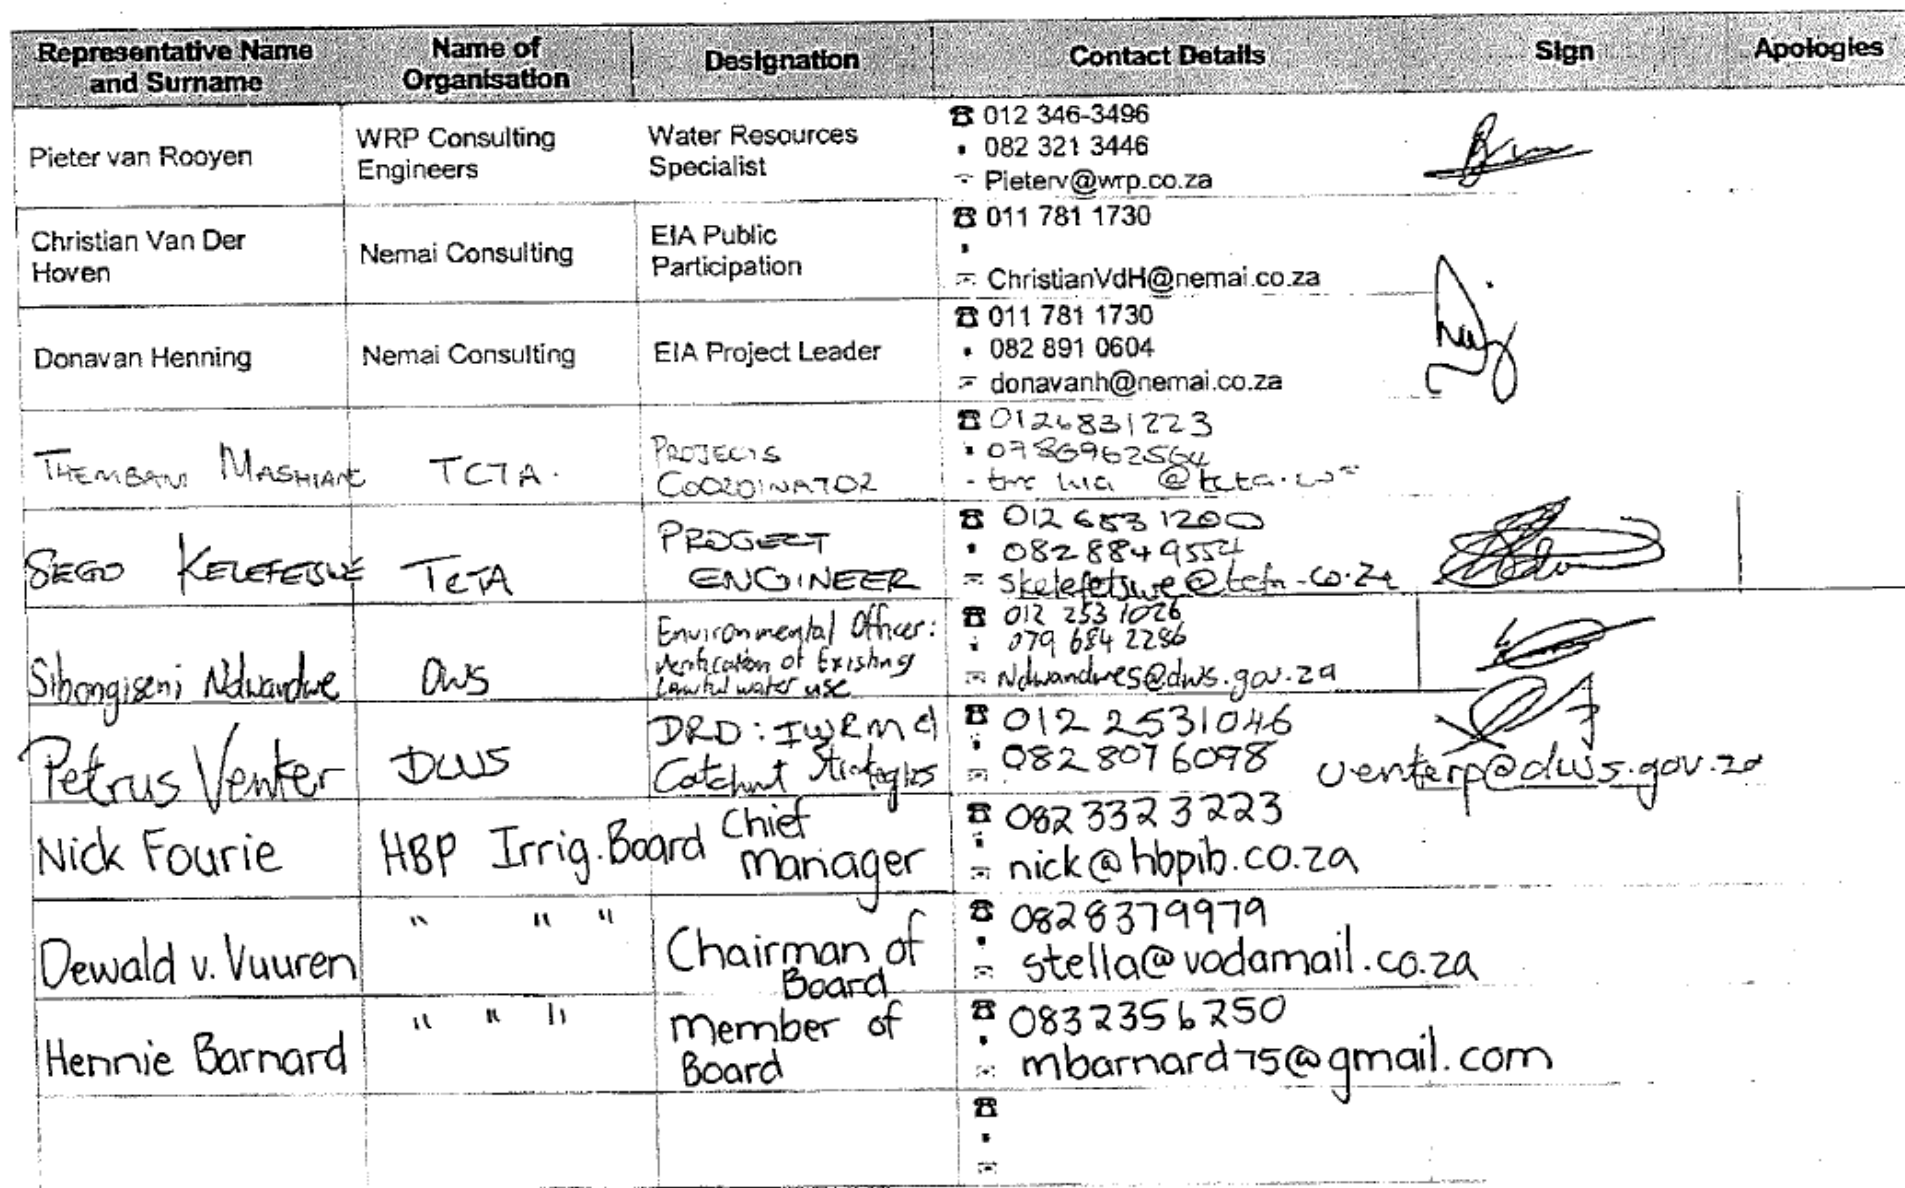 Representative Name and Surname
Name of Organisation
Designation
Contact Details
Sign
Apologies
Pieter van Rooyen
WRP Consulting Engineers
Water Resources Specialist
012 346-3496
082 321 3446
Pieterv@wrp.co.za
Christian Van Der Hoven
Nemai Consulting
EIA Public Participation
011 781 1730
ChristianVdH@nemai.co.za
Donavan Henning
Nemai Consulting
EIA Project Leader
011 781 1730
082 891 0604
donavanh@nemai.co.za
THEMBANI MASHIANE
TCTA.
PROJECTS
COORDINATOR
0126831223
0786962564
@tcta.
SEGO KELEFETSWE
TCTA
PROJECT
ENGINEER
012 683 1200
082 884 9554
skelefetswe@tcta.co.za
Sibongiseni Ndwandwe
DWS
Environmental Officer:
Verification of Existing
Lawful water use
012 253 1026
079 684 2286
Ndwandwes@dws.gov.za
Petrus Venter
DWS
DRD: IWRM &
Catchmt Strategies
012 2531046
082 8076098
venterp@dws.gov.za
Nick Fourie
HBP Irrig. Board
Chief
manager
082 332 3223
nick@hbpib.co.za
Dewald v. Vuuren
" " "
Chairman of
Board
0828379979
stella@vodamail.co.za
Hennie Barnard
" " "
member of
Board
0832356250
mbarnard75@gmail.com